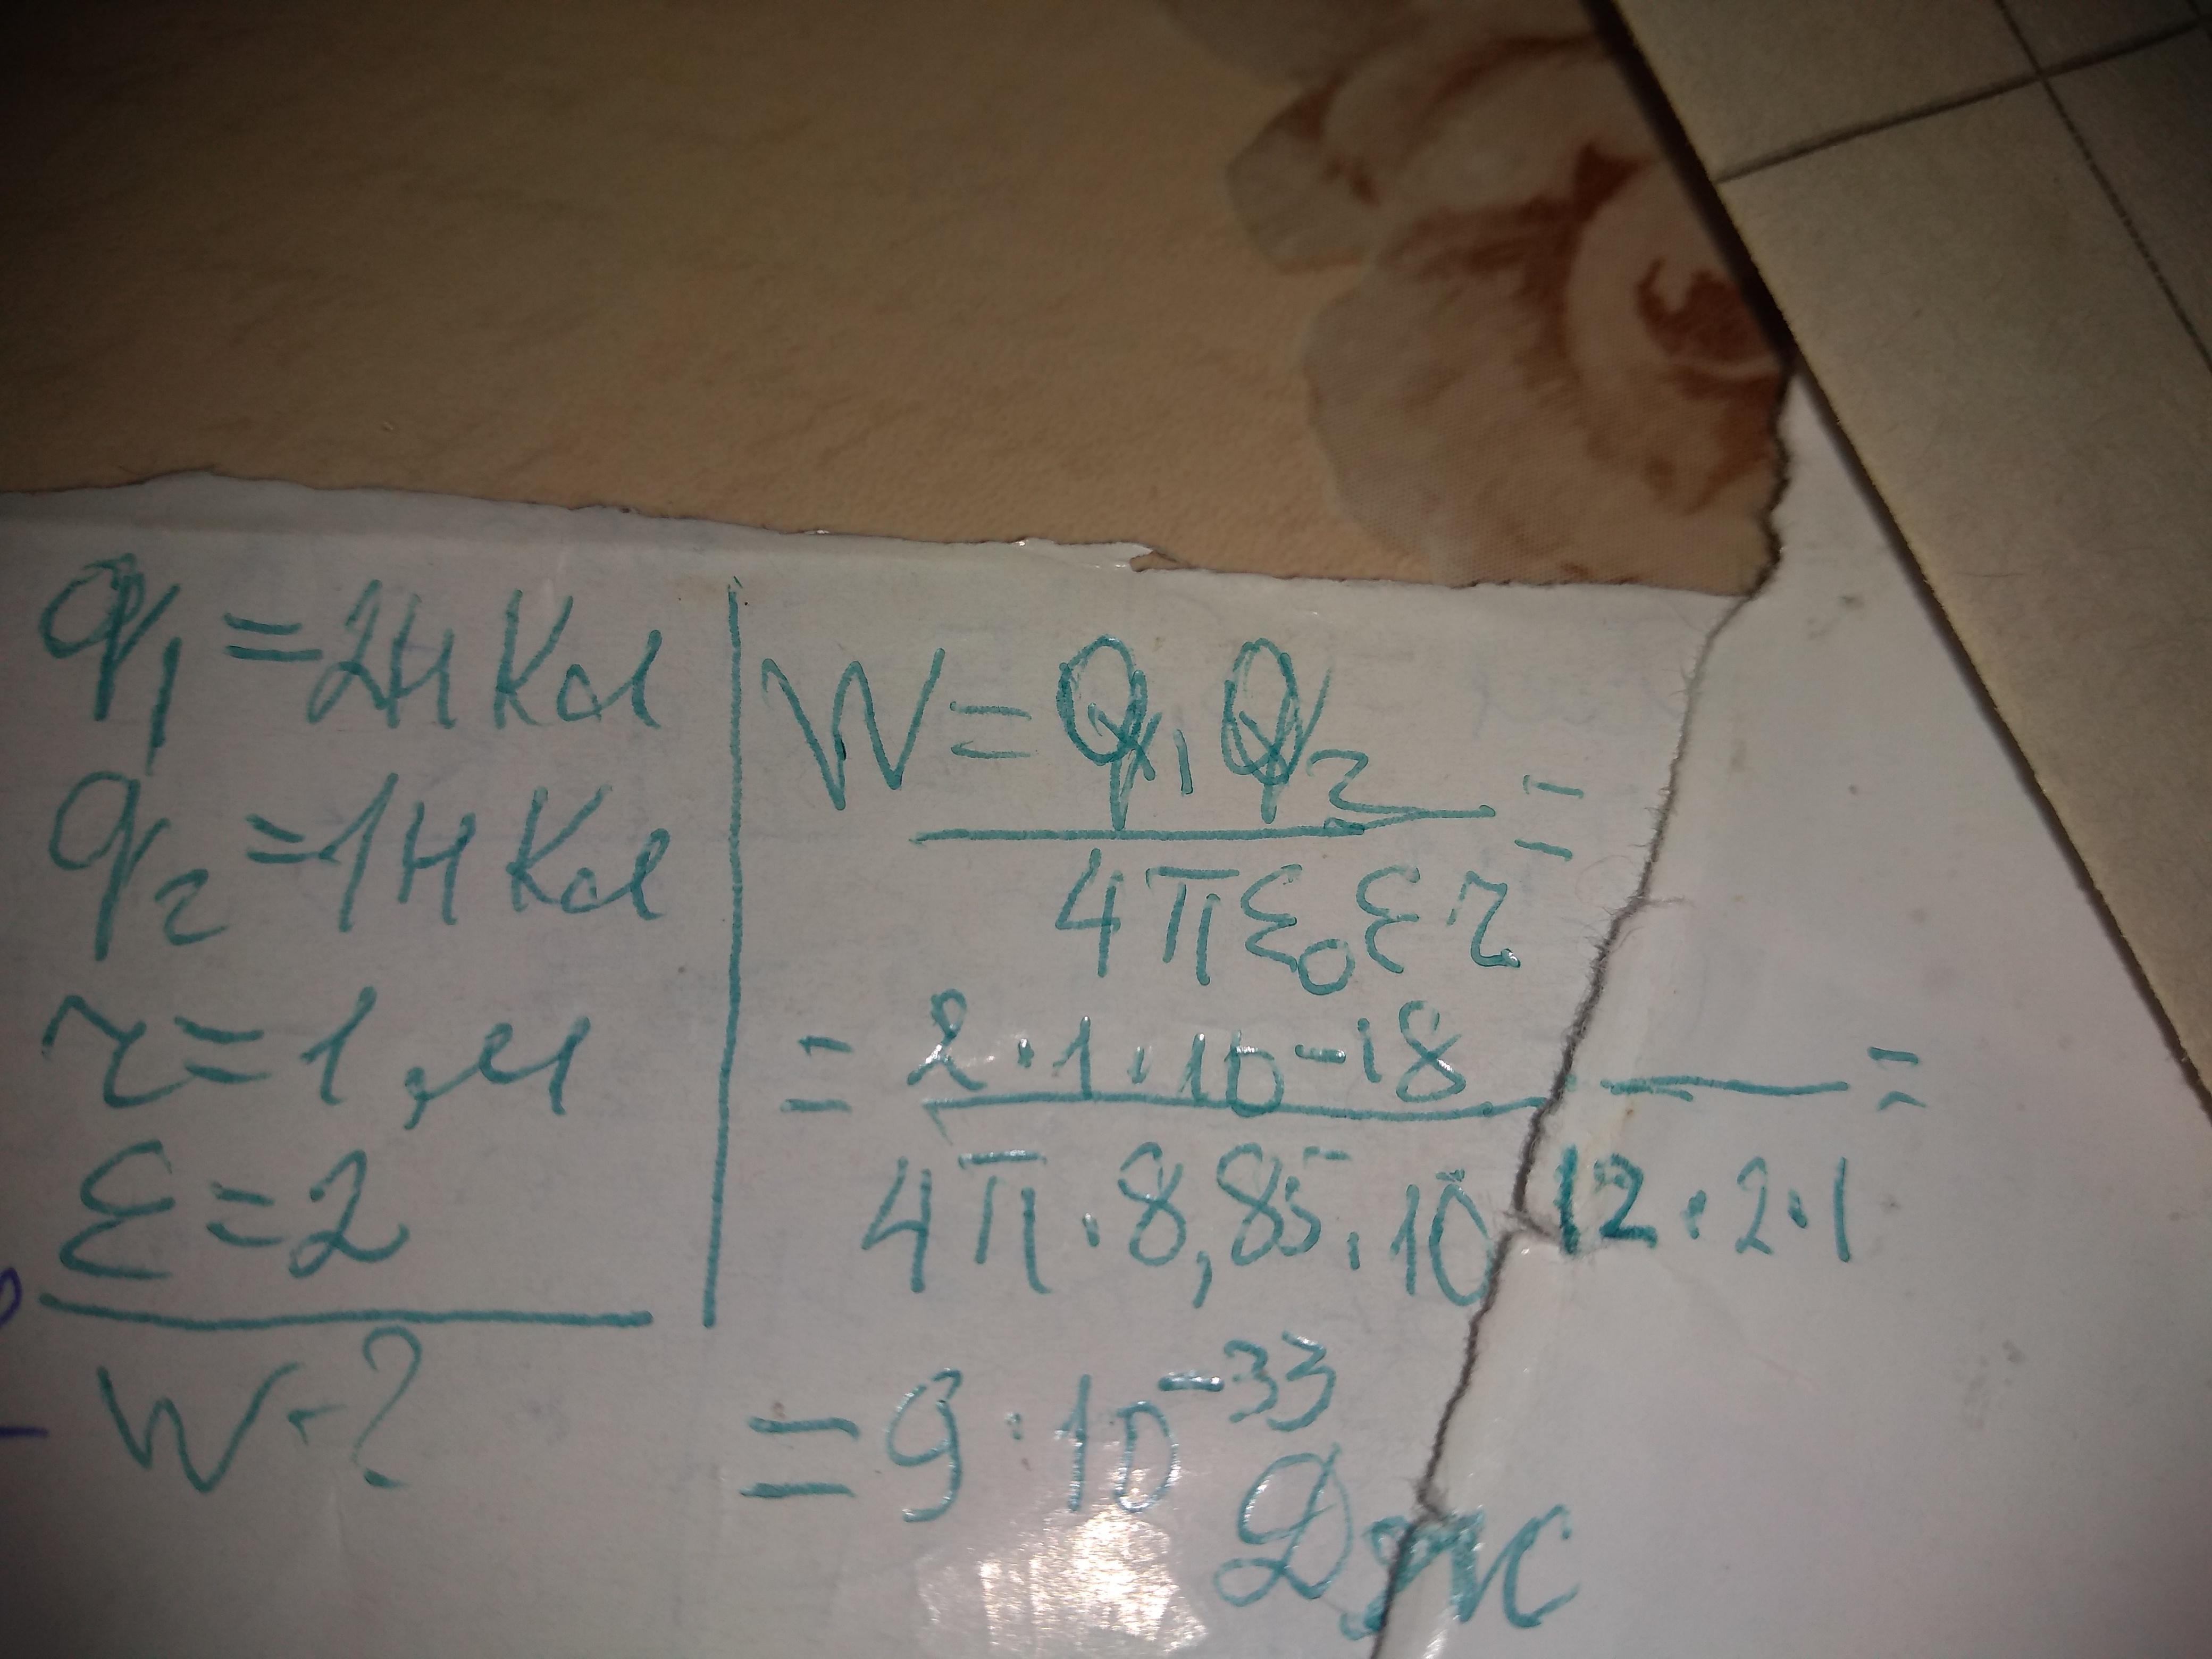 q₁ = 2н Кл
q₂ = 1н Кл
r = 1 м
ε = 2
W - ?
W = q₁q₂ / 4πε₀εr =
= 2·1·10⁻¹⁸ / 4π·8,85·10⁻¹²·2·1 =
= 9·10⁻³³ Дж